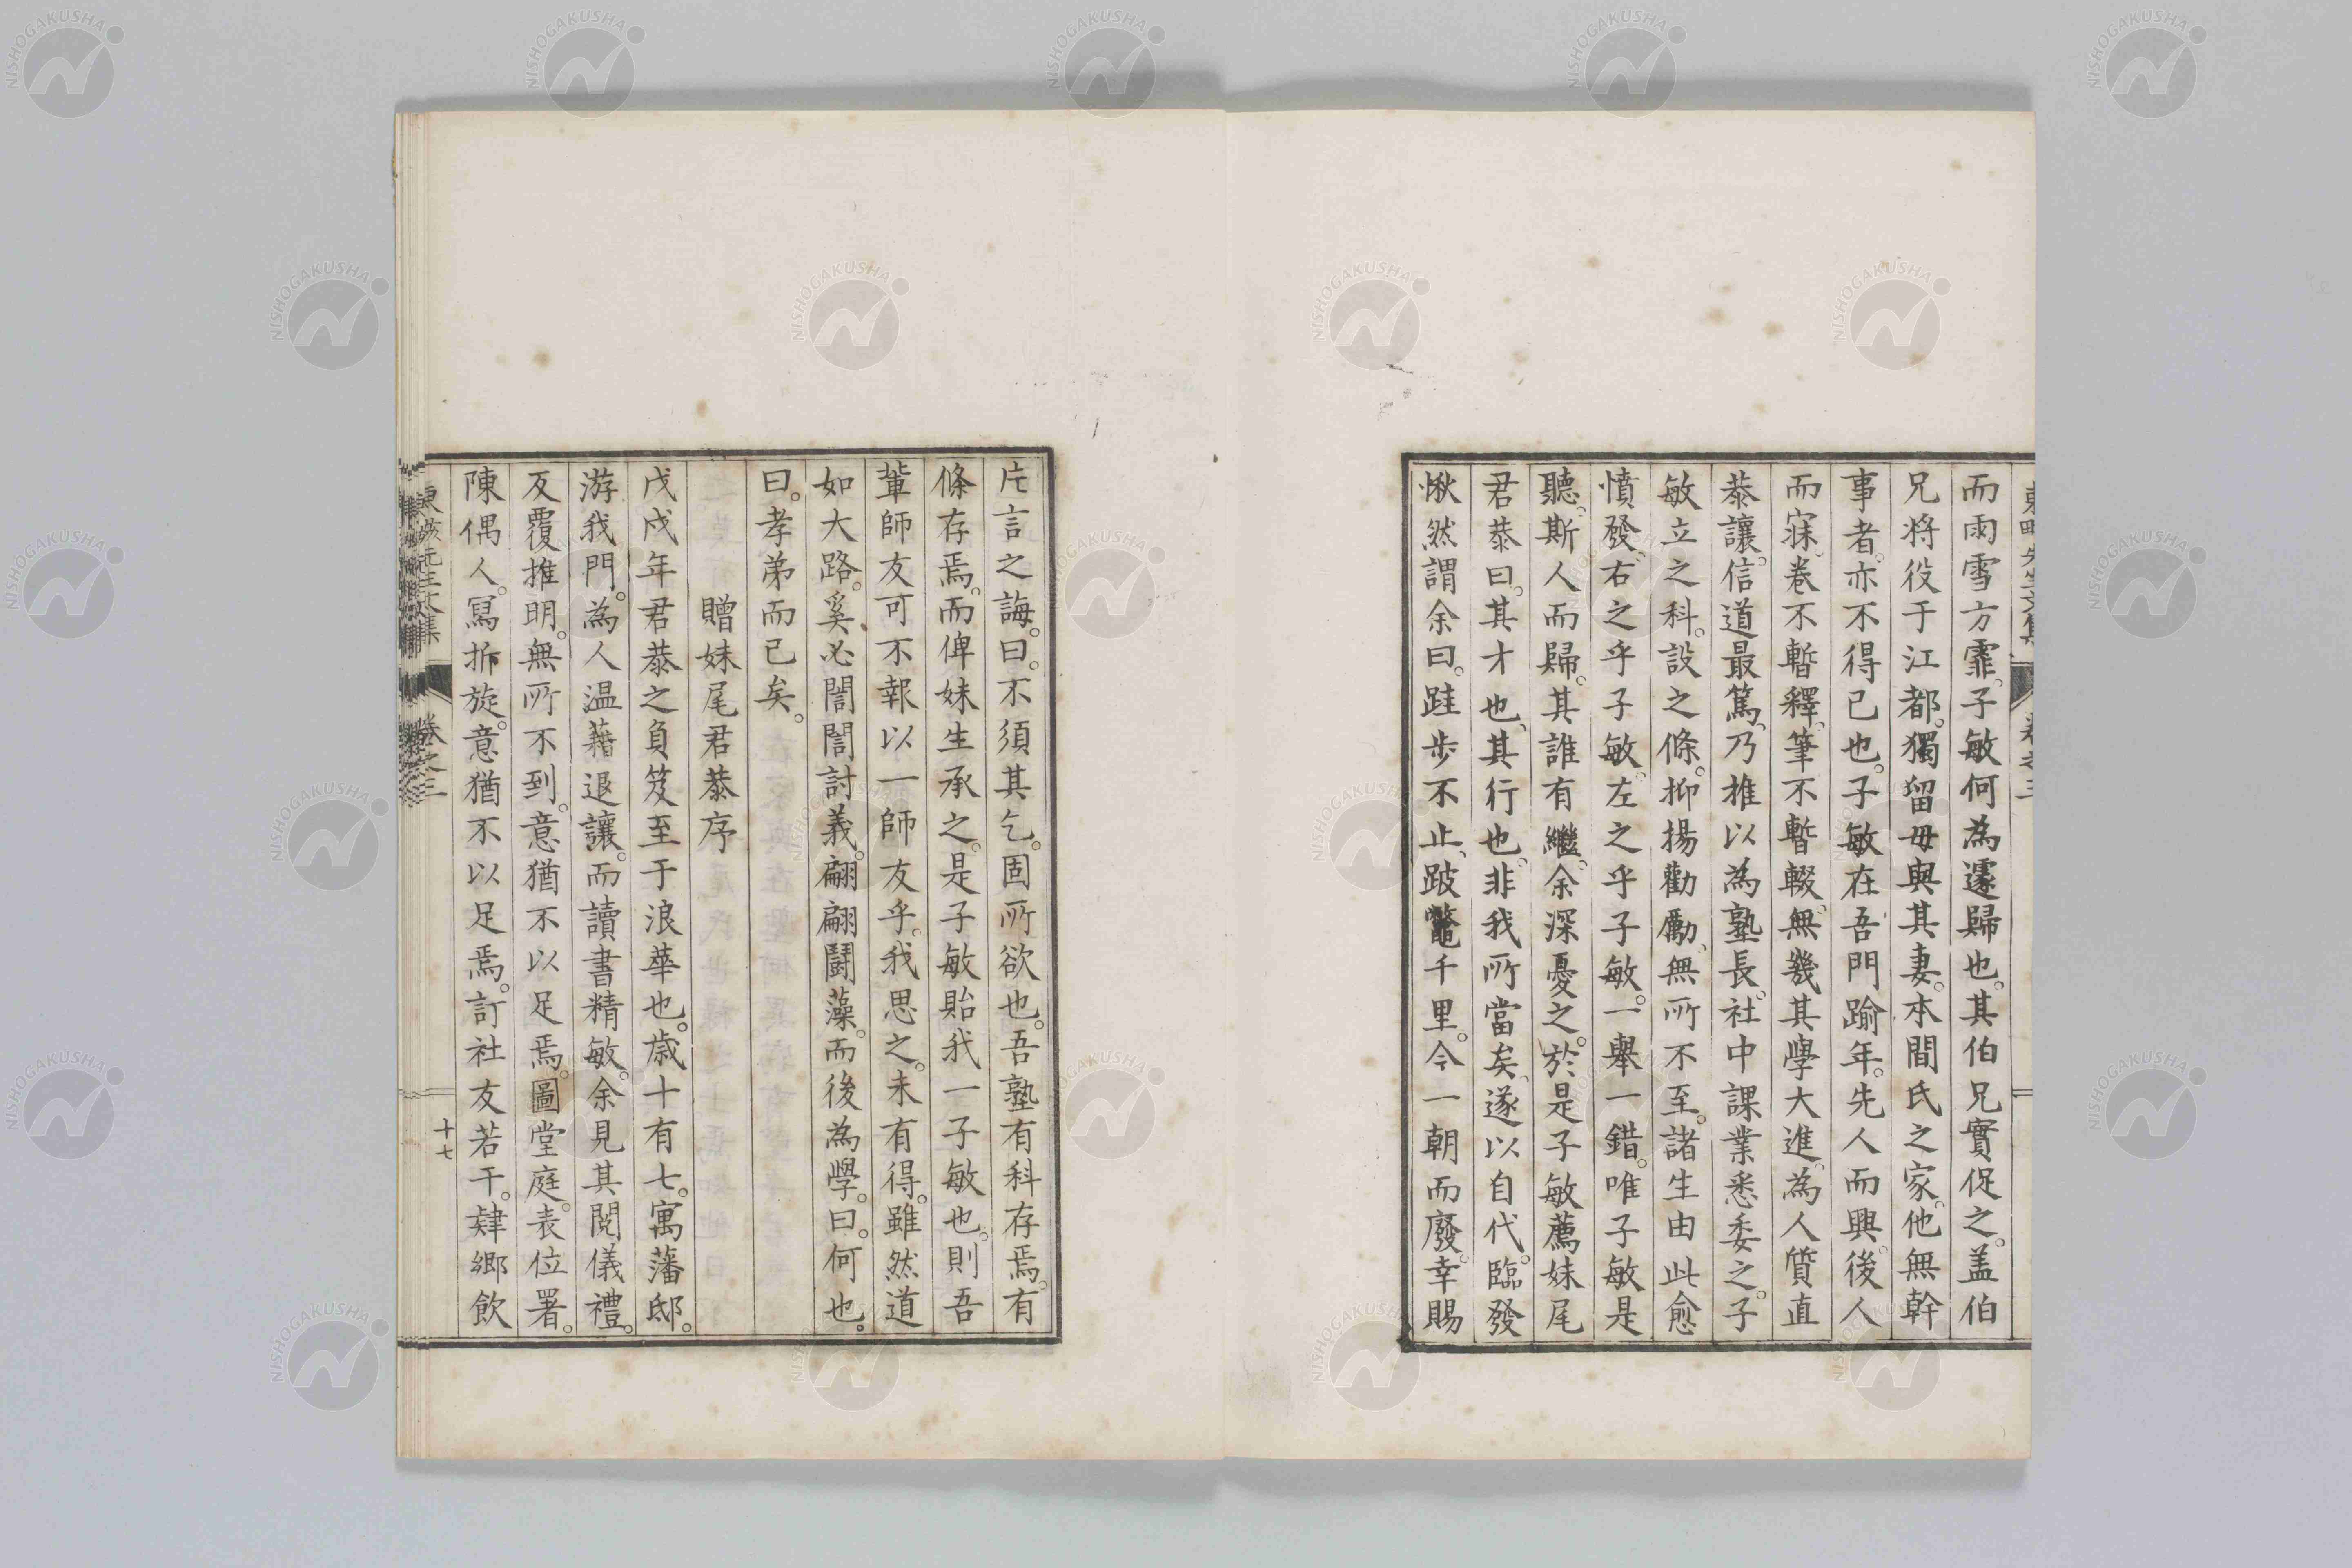 而雨雪方霏。子敏何為遽歸也。其伯兄實促之。盖伯
兄將役于江都。獨留毋與其妻。本間氏之家。他無幹
事者。亦不得已也。子敏在吾門踰年。先人而興。後人
而寐。卷不暫釋。筆不暫輟。無幾其學大進。為人質直
恭讓。信道最篤。乃推以為塾長。社中課業悉委之。子
敏立之科。設之條。抑揚勸勵。無所不至。諸生由此愈
憤發。右之乎子敏。左之乎子敏。一舉一錯。唯子敏是
聽。斯人而歸。其誰有繼。余深憂之。於是子敏薦妹尾
君恭曰。其才也。其行也。非我所當矣。遂以自代。臨發
愀然謂余曰。跬步不止。跛鼈千里。今一朝而廢。幸賜
片言之誨。曰。不須其乞。固所欲也。吾塾有科存焉。有
條存焉。而俾妹生承之。是子敏貽我一子敏也。則吾
輩師友可不報以一師友乎。我思之。未有得。雖然道
如大路。奚必誾誾討義。翩翩鬪藻。而後為學。曰。何也。
曰。孝弟而已矣。
贈妹尾君恭序
戊戌年君恭之負笈至于浪華也。歲十有七。寓藩邸。
游我門。為人温藉退讓。而讀書精敏。余見其閱儀禮。
反覆推明。無所不到。意猶不以足焉。圖堂庭。表位署。
陳偶人。寫折旋。意猶不以足焉。訂社友若干。肄鄉飲
東畡先生文集
卷之三
十七